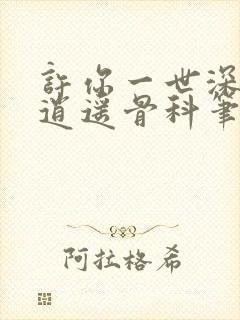 許你一世深
道遥骨科筆
阿拉格希